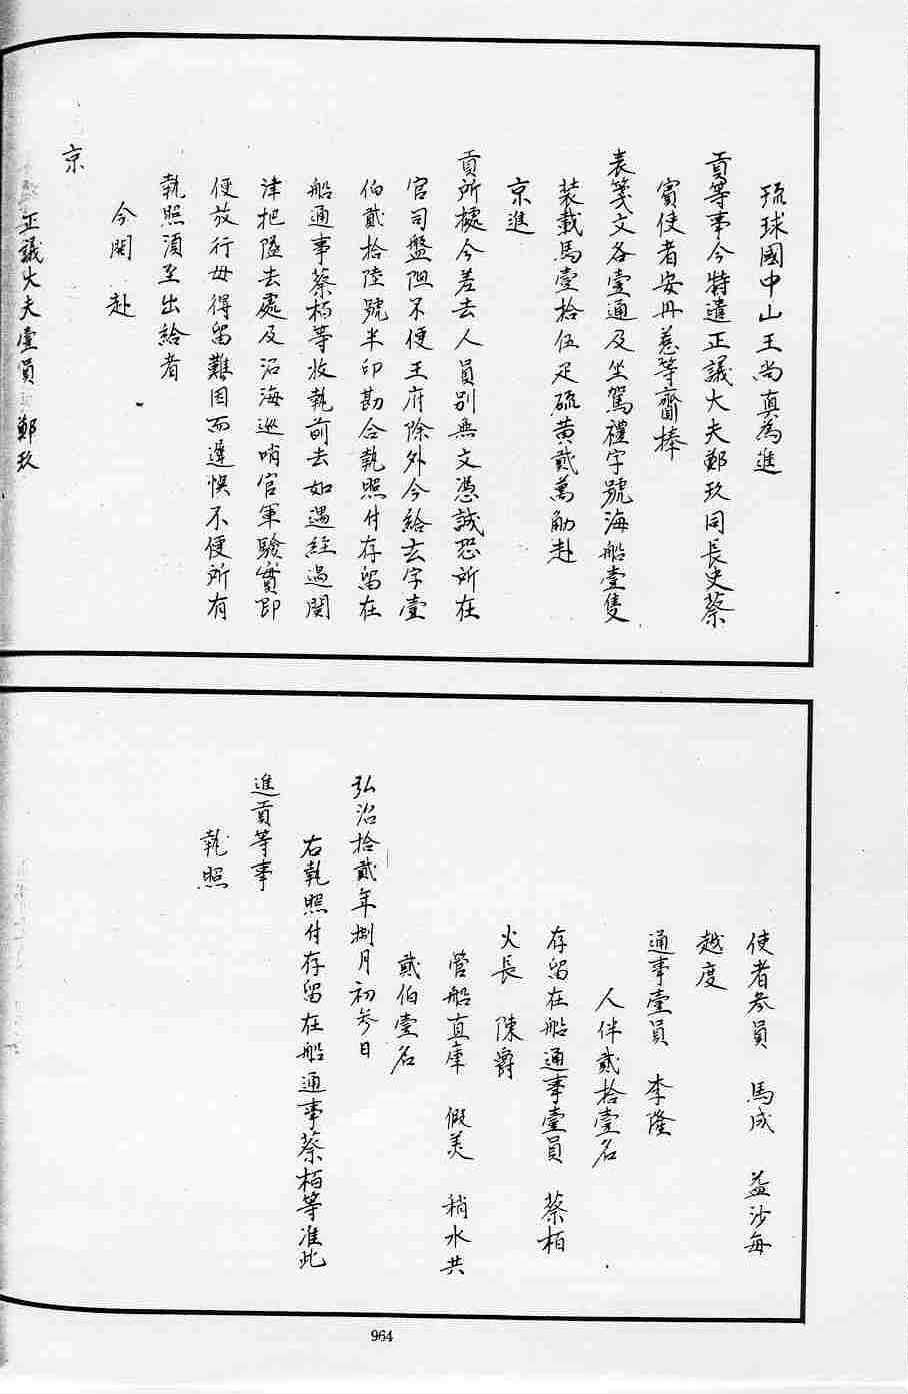 琉球國中山王尚真為進
貢等事今特遣正議大夫鄭玖同長史蔡
賓使者安丹惹等齎捧
表箋文各壹通及坐駕禮字號海船壹隻
装載馬壹拾伍疋硫黄貳萬觔赴
京進
貢所據今差去人員別無文憑誠恐所在
官司盤阻不便王府除外今給去字壹
伯貳拾陸號半印勘合執照付存留在
船通事蔡栢等收執前去如遇經過関
津把隘去處及沿海巡哨官軍驗實即
便放行毋得留難因而遲悞不便所有
執照須至出給者
今開赴
京
正議大夫壹員 鄭玖
使者叁員 馬成 益沙每
越度
通事壹員 李隆
人伴貳拾壹名
存留在船通事壹員 蔡栢
火長 陳爵
管船直庫 假美 稍水共
貳伯壹名
弘治拾貳年捌月初叁日
右執照付存留在船通事蔡栢等准此
進貢等事
執照
964